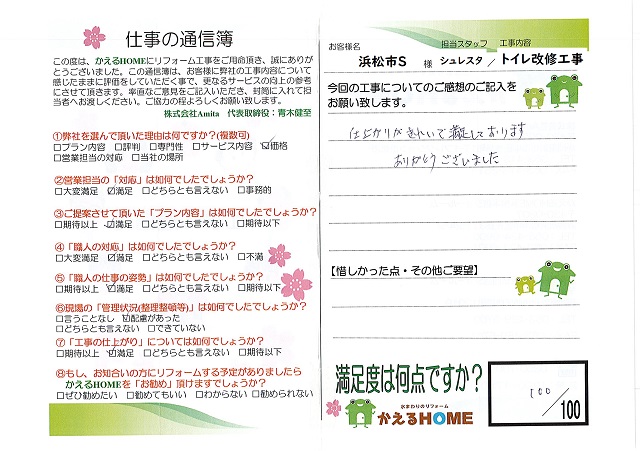 仕事の通信簿
この度は、かえるHOMEにリフォーム工事をご用命頂き、誠にありが
とうございました。この通信簿は、お客様に弊社の工事内容について
感じたままに評価をしていただく事で、更なるサービスの向上の参考
にさせて頂きます。率直なご意見をご記入いただき、封筒に入れて担
当者へお渡しください。ご協力の程よろしくお願い致します。
株式会社Amita 代表取締役：青木健至
①弊社を選んで頂いた理由は何ですか？(複数可)
□プラン内容 □評判 □専門性 □サービス内容 ☑価格
□営業担当の対応 □当社の場所
②営業担当の「対応」は如何でしたでしょうか？
□大変満足 ☑満足 □どちらとも言えない □事務的
③ご提案させて頂いた「プラン内容」は如何でしたでしょうか？
□期待以上 ☑満足 □どちらとも言えない □期待以下
④「職人の対応」は如何でしたでしょうか？
□大変満足 ☑満足 □どちらとも言えない □不満
⑤「職人の仕事の姿勢」は如何でしたでしょうか？
□期待以上 ☑満足 □どちらとも言えない □期待以下
⑥現場の「管理状況(整理整頓等)」は如何でしたでしょうか？
□言うことなし ☑配慮があった
□どちらとも言えない □できていない
⑦「工事の仕上がり」については如何でしたでしょうか？
□期待以上 ☑満足 □どちらとも言えない □期待以下
⑧もし、お知合いの方にリフォームする予定がありましたら
かえるHOMEを「お勧め」頂けますでしょうか？
□ぜひ勧めたい □勧めてもいい □わからない □勧められない
お客様名 担当スタッフ 工事内容
浜松市S 様 シュレスタ / トイレ改修工事
今回の工事についてのご感想のご記入を
お願い致します。
仕上がりがきれいで満足しております
ありがとうございました
【惜しかった点・その他ご要望】
満足度は何点ですか？
100/100
水まわりのリフォーム
かえるHOME